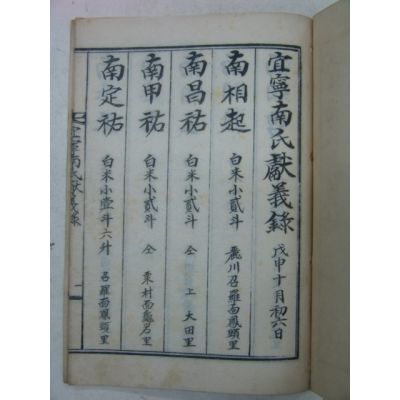 宜寧南氏獻義錄 戊申十月初六日
南相起 白米小貳斗 麗川召羅面鳳頭里
南昌祐 白米小貳斗 仝 上 大田里
南甲祐 白米小貳斗 仝 栗村面
南定祐 白米小壹斗六升 召羅面鳳頭里
宜寧南氏獻義錄 一